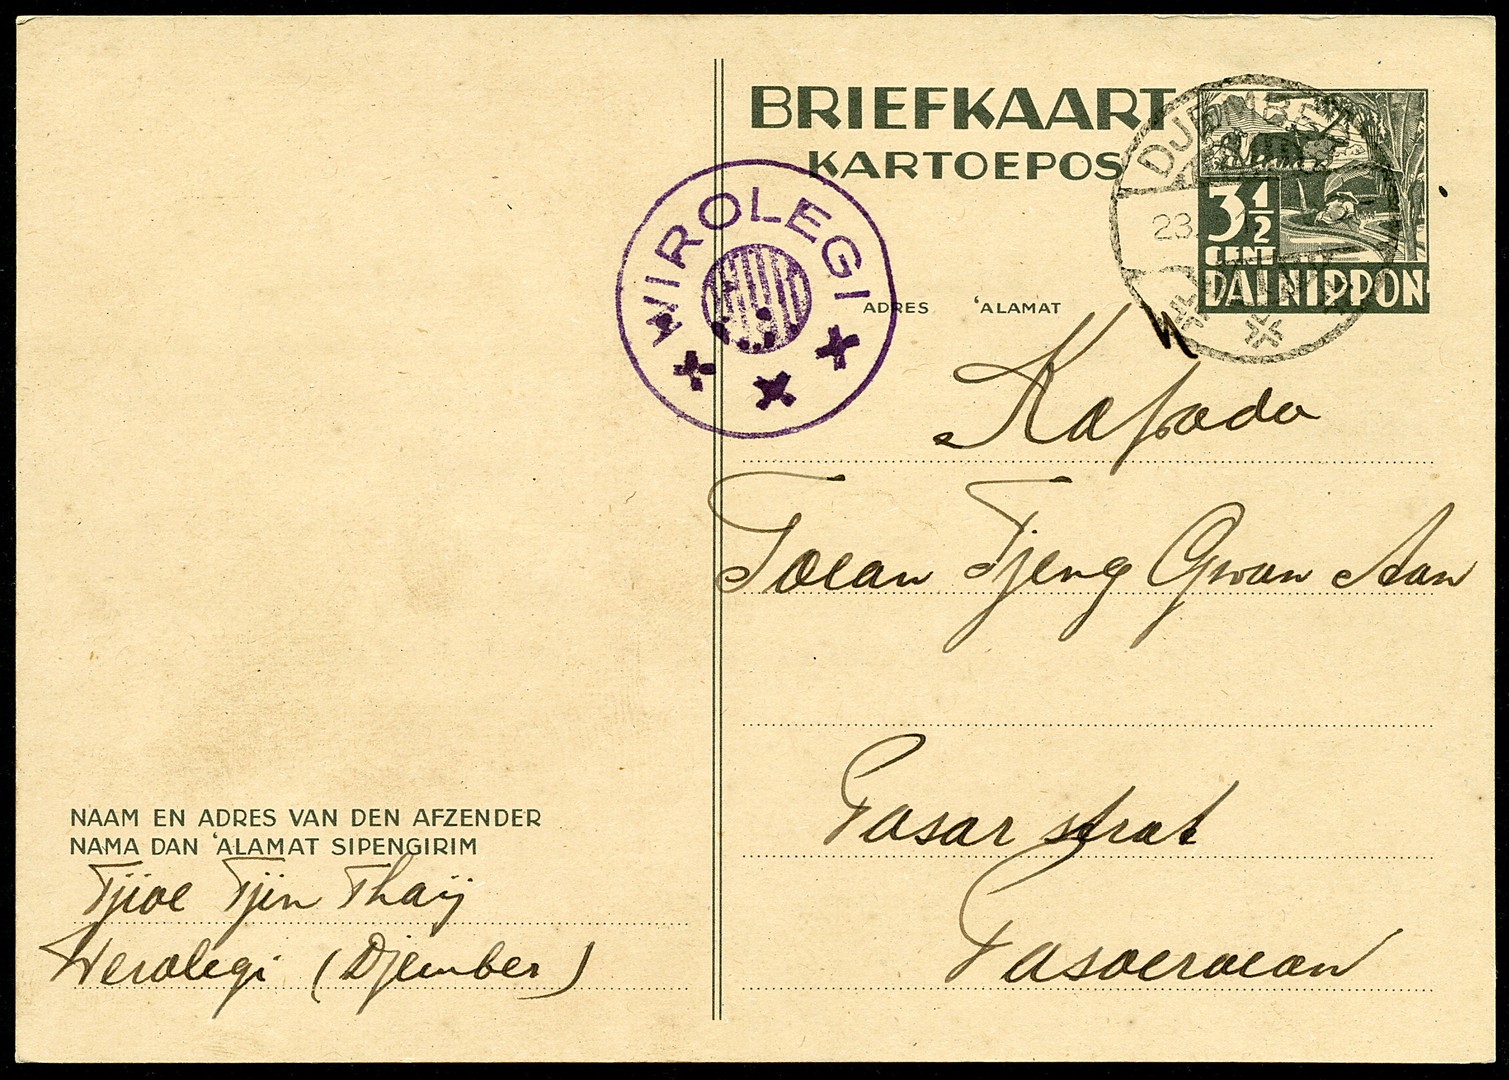 BRIEFKAART
KARTOEPOS
DJEMBER
23
3 1/2
CENT
DAI NIPPON
WIROLEGI
ADRES 'ALAMAT
Kapada
Toean Tjeng Gwan Aan
Pasar strat
Pasoeroean
NAAM EN ADRES VAN DEN AFZENDER
NAMA DAN 'ALAMAT SIPENGIRIM
Tjioe Tjin Thaij
Werolegi (Djember)